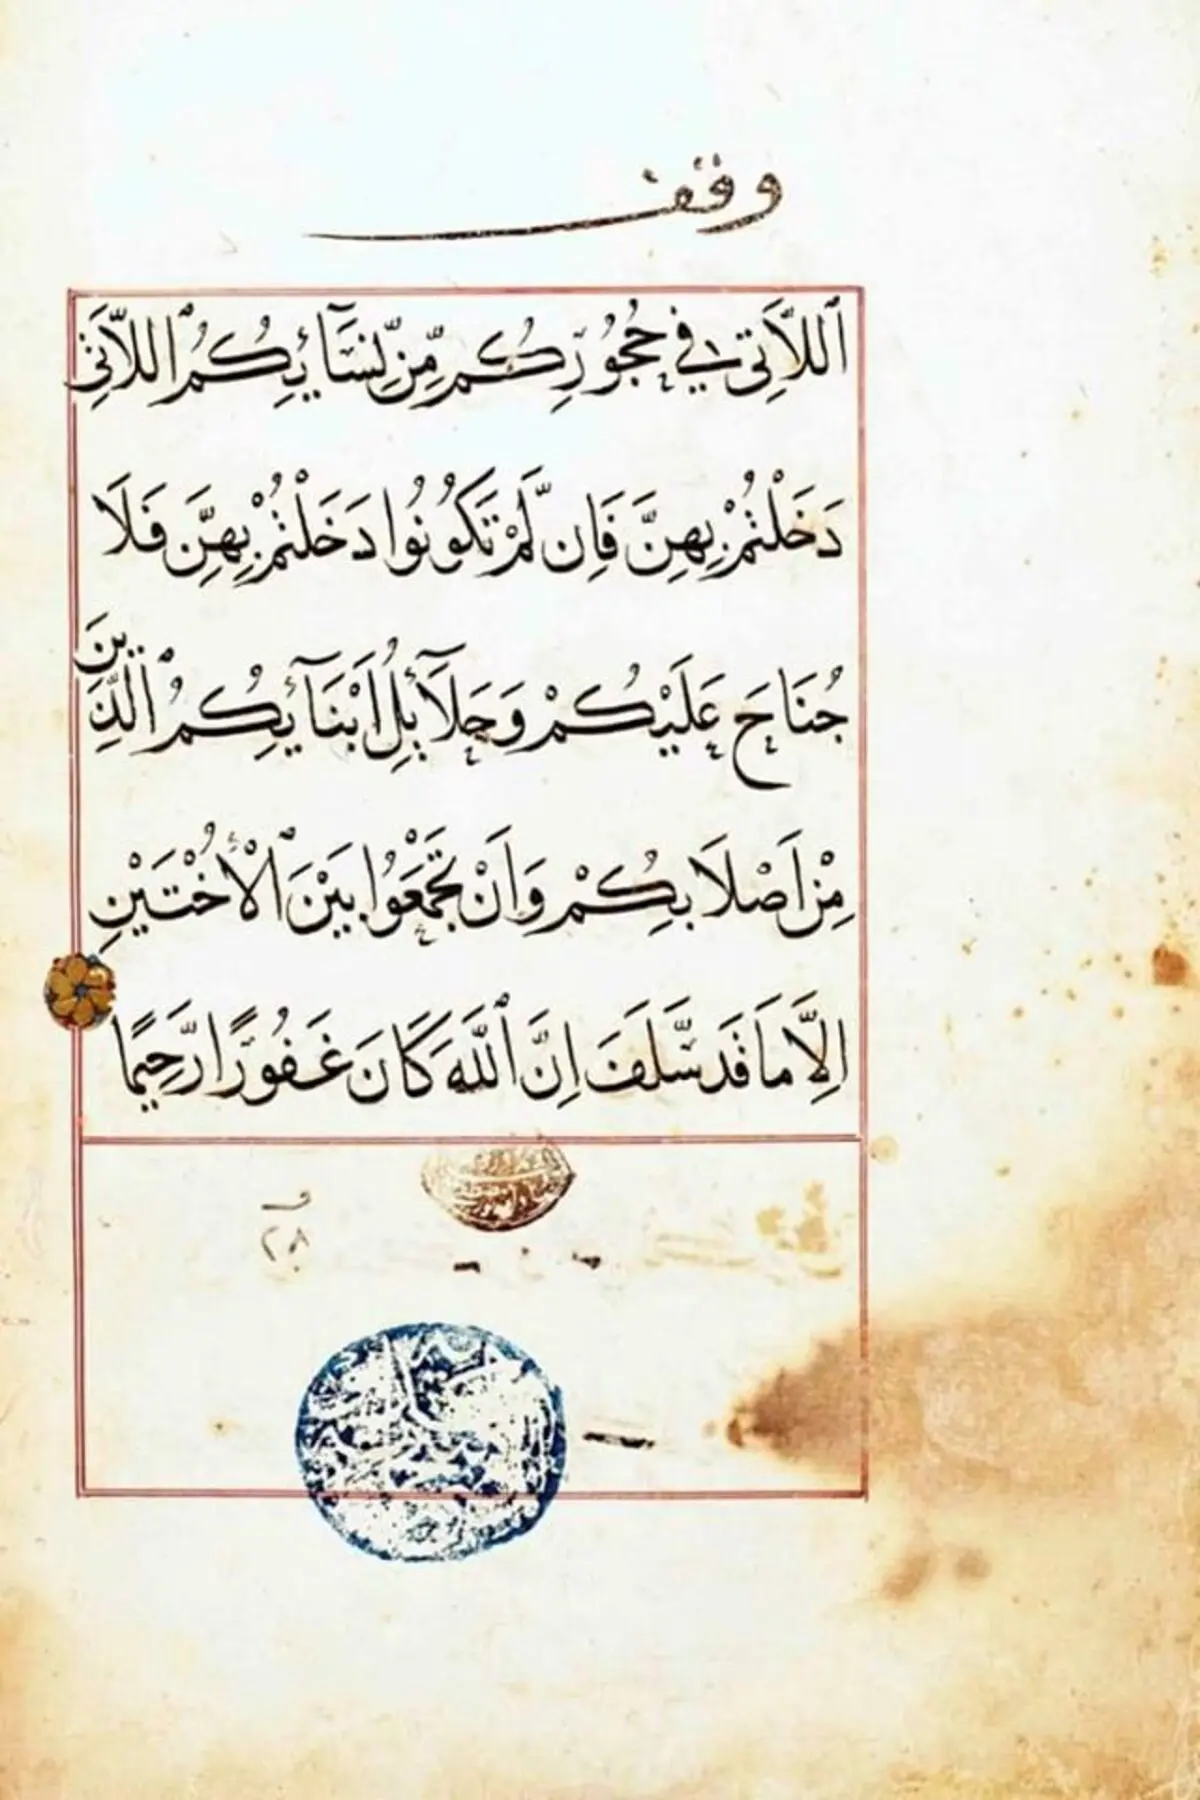 وقف
ٱللَّاتِى فِى حُجُورِكُم مِّن نِّسَآئِكُمُ ٱللَّاتِى
دَخَلْتُمْ بِهِنَّ فَاِن لَّمْ تَكُونُوا دَخَلْتُمْ بِهِنَّ فَلَا
جُنَاحَ عَلَيْكُمْ وَحَلَآئِلُ اَبْنَآئِكُمُ ٱلَّذِينَ
مِنْ اَصْلَابِكُمْ وَاَنْ تَجْمَعُوا بَيْنَ ٱلْأُخْتَيْنِ
اِلَّا مَا قَدْ سَّلَفَ اِنَّ ٱللَّهَ كَانَ غَفُورًا رَّحِيمًا